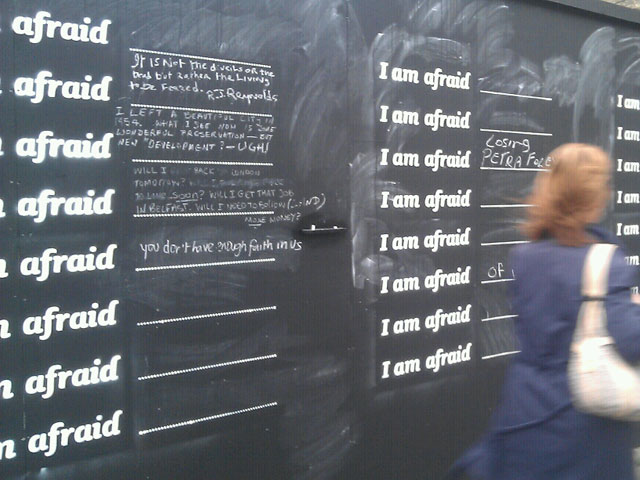 afraid
It is Not the diveils or the
Dead but Rather the Living
to be Feared. R.J. Reynolds
afraid
I LEFT A BEAUTIFUL CITY IN
1954. WHAT I SEE NOW IS SOME
WONDERFUL PRESERVATION - BUT
NEW "DEVELOPMENT"? - UGH!
m afraid
WILL I BACK LONDON
TOMORROW?
SOON? WILL I GET THAT JOB
IN BELFAST. WILL I NEED TO FOLLOW
MORE MONEY?
m afraid
m afraid
you don't have enough faith in us
m afraid
m afraid
m afraid
I am afraid
I am afraid
I am afraid
Losing
PETRA FORE
I am afraid
I am afraid
I am afraid
OF
I am afraid
I am afraid
I am
I am
I am
I am